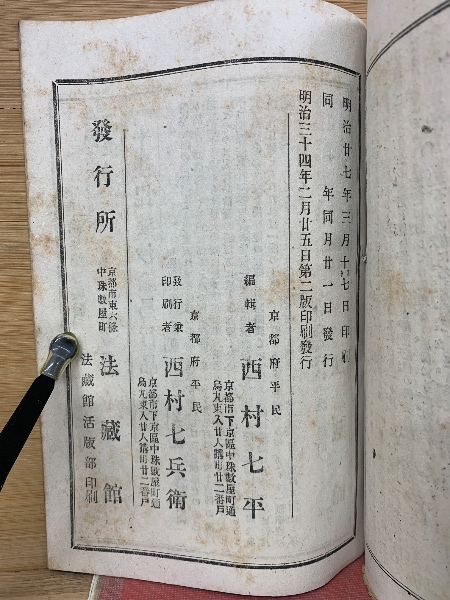 明治廿七年三月十七日印刷
同年同月廿一日發行
明治三十四年二月廿五日第二版印刷發行
京都府平民
編輯者 西村七平
京都市下京區中珠數屋町通
烏丸東入廿人講町廿二番戸
京都府平民
發行兼
印刷者 西村七兵衛
京都市下京區中珠數屋町通
烏丸東入廿人講町廿二番戸
發行所
京都市東六條
中珠數屋町 法藏館
法藏館活版部印刷